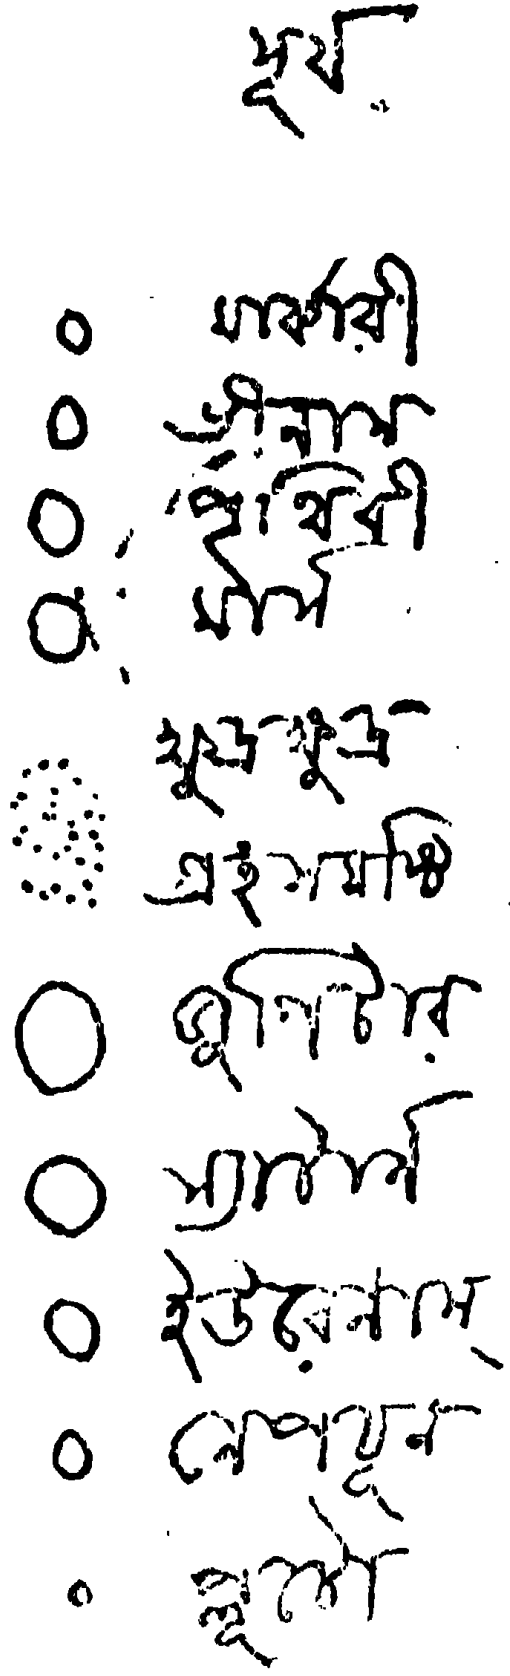 সূর্য
মার্কারী
ভীনাস
পৃথিবী
মার্স
ক্ষুদ্র ক্ষুদ্র
গ্রহসমষ্টি
জুপিটার
স্যাটার্ন
ইউরেনাস্
নেপচুন
প্লুটো